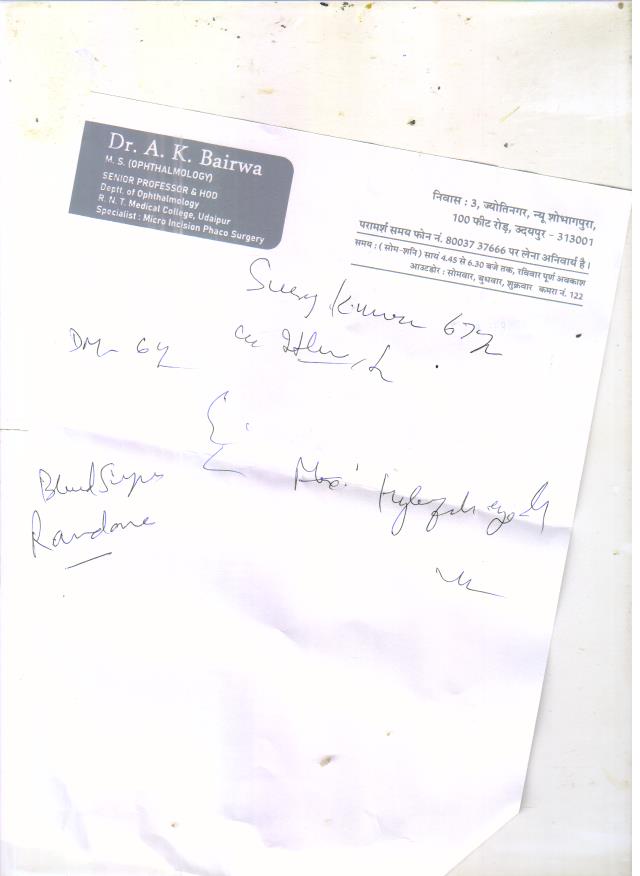 Dr. A. K. Bairwa
M. S. (OPHTHALMOLOGY)
SENIOR PROFESSOR & HOD
Deptt. of Ophthalmology
R. N. T. Medical College, Udaipur
Specialist : Micro Incision Phaco Surgery
निवास : 3, ज्योतिनगर, न्यू शोभागपुरा,
100 फीट रोड़, उदयपुर - 313001
परामर्श समय फोन नं. 80037 37666 पर लेना अनिवार्य है।
समय : ( सोम-शनि ) सायं 4.45 से 6.30 बजे तक, रविवार पूर्ण अवकाश
आउटडोर : सोमवार, बुधवार, शुक्रवार कमरा नं. 122
Kumar 67y
DM 6y
Blood Sugar
Random